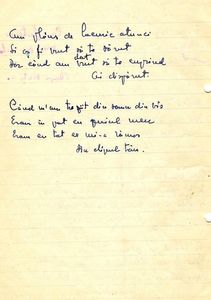 Am plâns de lacrimi atunci
Și aș fi vrut să te sărut
Dar când am dat să te cuprind
Ai dispărut

Când m'am trezit din somn din vis
Eram în pat cu gândul meu
Eram cu tot ce mi-a rămas
Cu chipul tău.